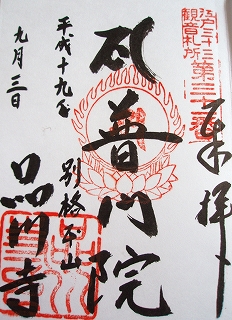 奉拝
江戸三十三
観音札所
第三十一番
普門院
別格本山
平成十九年
品川寺
九月三日